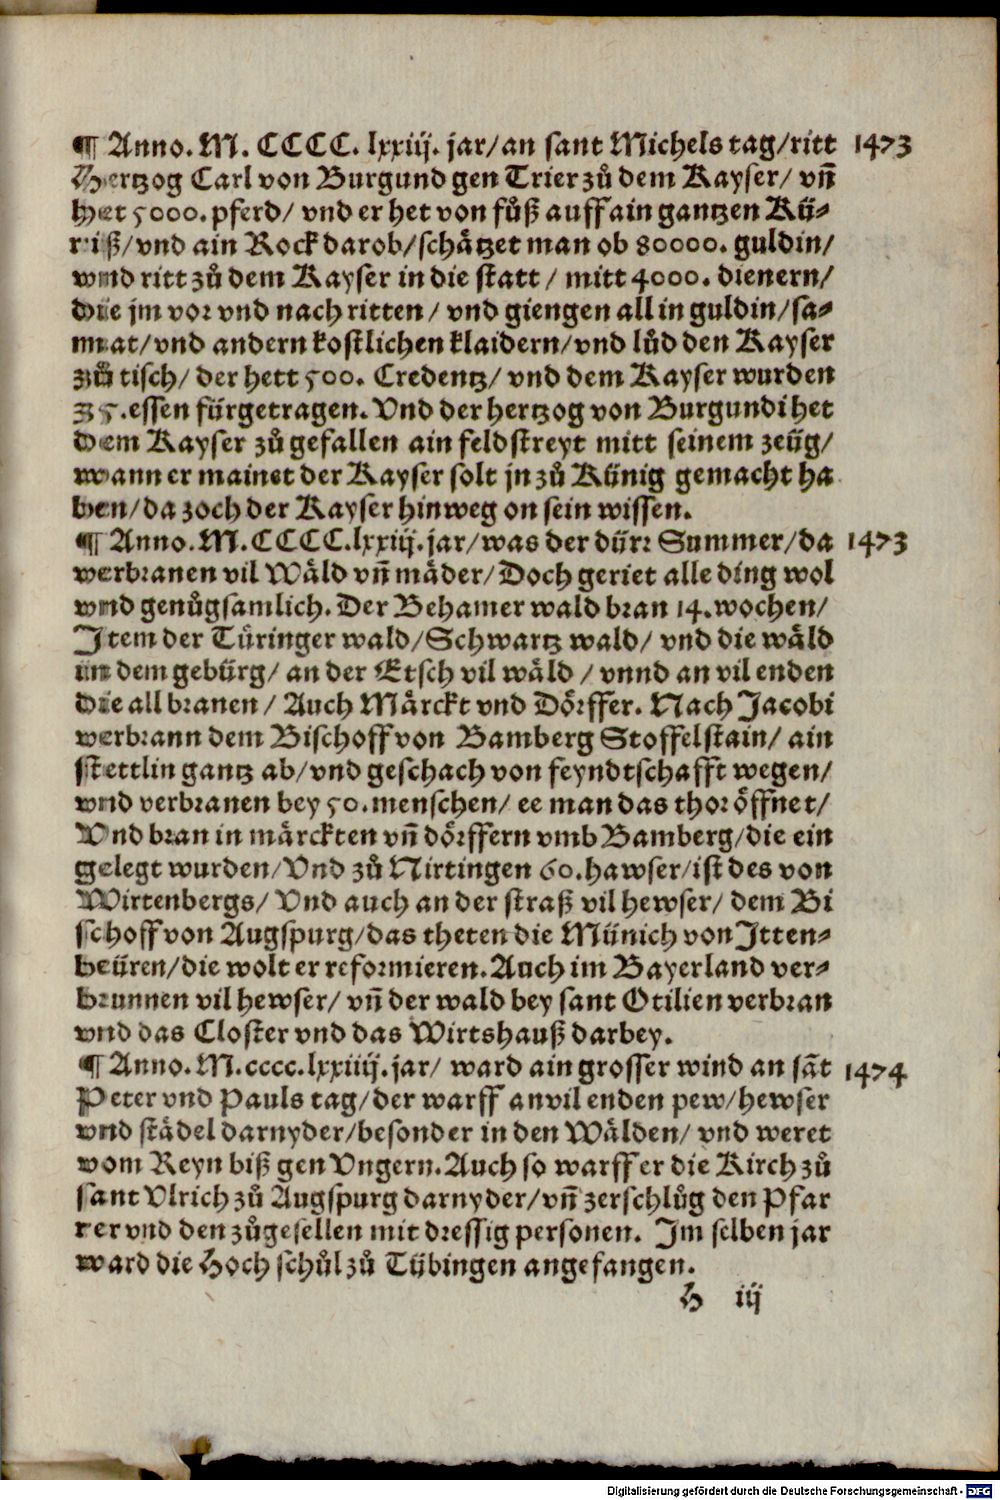 ¶ Anno. M. CCCC. lxxiij. jar/an sant Michels tag/ritt 1473
Hertzog Carl von Burgund gen Trier zů dem Kayser/ vn̄
het 5000. pferd/ vnd er het von fůß auff ain gantzen Kü-
riß/vnd ain Rock darob/schätzet man ob 80000. guldin/
vnd ritt zů dem Kayser in die statt / mitt 4000. dienern/
die jm vor vnd nach ritten / vnd giengen all in guldin/sa-
mat/vnd andern kostlichen klaidern/vnd lůd den Kayser
zů tisch/ der hett 500. Credentz/ vnd dem Kayser wurden
35.essen fürgetragen. Vnd der hertzog von Burgundi het
dem Kayser zů gefallen ain feldstreyt mitt seinem zeüg/
wann er mainet der Kayser solt jn zů Künig gemacht ha
ben/da zoch der Kayser hinweg on sein wissen.
¶ Anno.M.CCCC.lxxiij.jar/was der dürr Summer/da 1473
verbranen vil Wäld vn̄ mäder/Doch geriet alle ding wol
vnd genůgsamlich. Der Behamer wald bran 14.wochen/
Item der Türinger wald/Schwartz wald/ vnd die wäld
in dem gebürg/ an der Etsch vil wäld / vnnd an vil enden
die all branen / Auch Märckt vnd Dörffer. Nach Jacobi
verbrann dem Bischoff von Bamberg Stoffelstain/ ain
stettlin gantz ab/vnd geschach von feyndtschafft wegen/
vnd verbranen bey 50.menschen/ ee man das thor öffnet/
Vnd bran in märckten vn̄ dörffern vmb Bamberg/die ein
gelegt wurden/Vnd zů Nirtingen 60.hawser/ist des von
Wirtenbergs/ Vnd auch an der straß vil hewser/ dem Bi
schoff von Augspurg/das theten die Münich von Itten-
beüren/die wolt er reformieren.Auch im Bayerland ver-
brunnen vil hewser/ vn̄ der wald bey sant Otilien verbran
vnd das Closter vnd das Wirtshauß darbey.
¶ Anno.M.cccc.lxxiiij.jar/ ward ain grosser wind an sāt 1474
Peter vnd Pauls tag/der warff an vil enden pew/hewser
vnd städel darnyder/besonder in den Wälden/ vnd weret
vom Reyn biß gen Vngern.Auch so warff er die Kirch zů
sant Vlrich zů Augspurg darnyder/vn̄ zerschlůg den Pfar
rer vnd den zůgesellen mit dressig personen. Im selben jar
ward die Hoch schůl zů Tübingen angefangen.
H iij
Digitalisierung gefördert durch die Deutsche Forschungsgemeinschaft - DFG